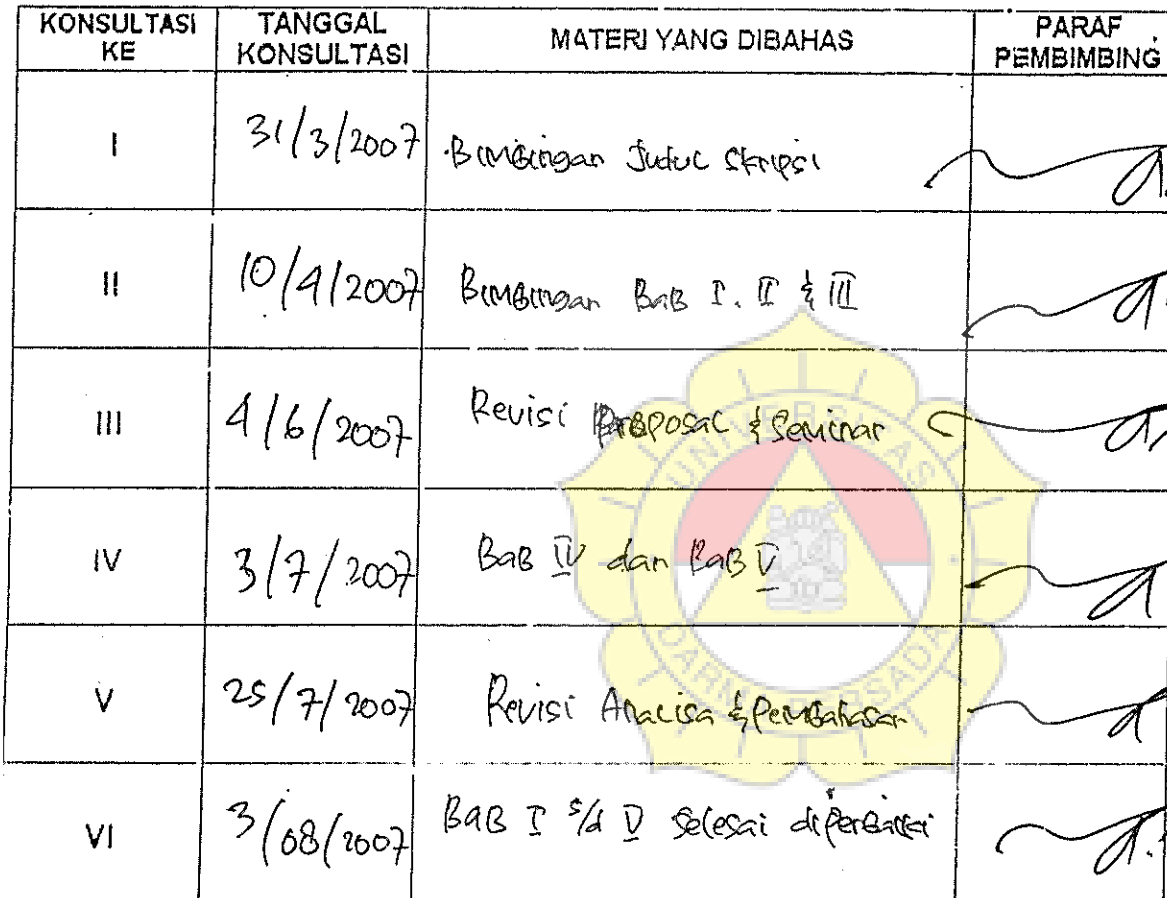 KONSULTASI KE TANGGAL KONSULTASI MATERI YANG DIBAHAS PARAF PEMBIMBING
I 31/3/2007 Bimbingan Judul Skripsi
II 10/4/2007 Bimbingan Bab I. II & III
III 4/6/2007 Revisi Proposal & Seminar
IV 3/7/2007 Bab IV dan Bab V
V 25/7/2007 Revisi Analisa & Pembahasan
VI 3/08/2007 Bab I s/d V selesai diperbaiki
UNIVERSITAS
DARMA PERSADA